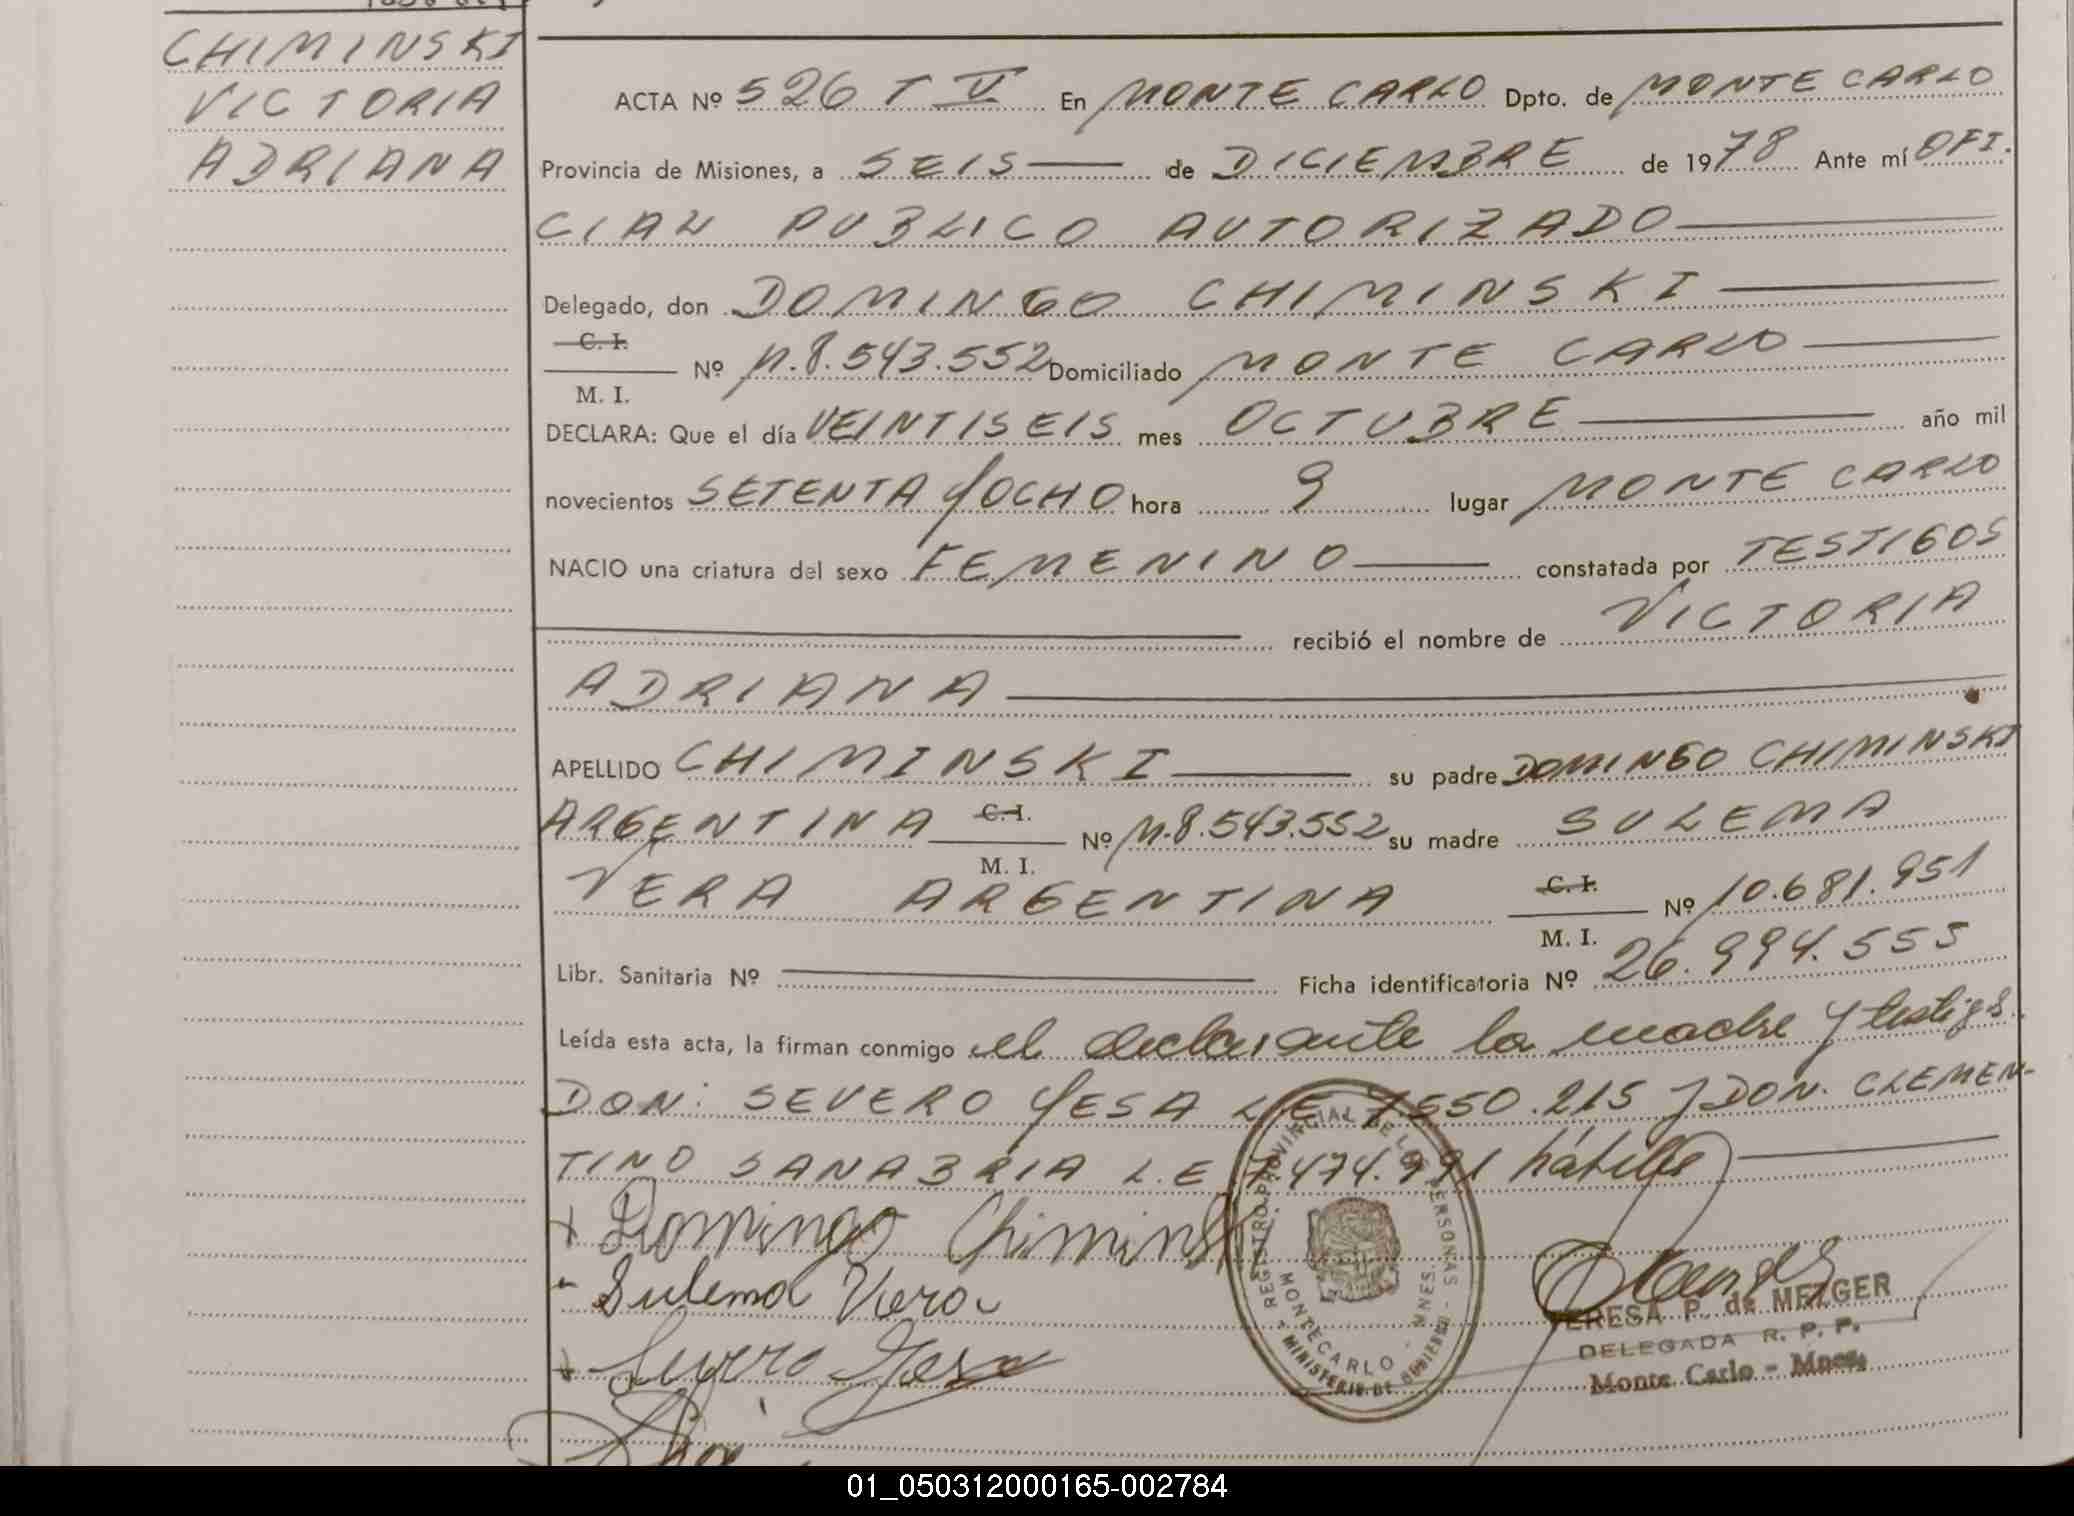 CHIMINSKI
VICTORIA
ADRIANA
ACTA Nº 526 T V En MONTE CARLO Dpto. de MONTE CARLO
Provincia de Misiones, a SEIS de DICIEMBRE de 1978 Ante mí OFI.
CIAL PUBLICO AUTORIZADO
Delegado, don DOMINGO CHIMINSKI
C. I.
M. I. Nº M.8.543.552 Domiciliado MONTE CARLO
DECLARA: Que el día VEINTISEIS mes OCTUBRE año mil
novecientos SETENTA Y OCHO hora 9 lugar MONTE CARLO
NACIO una criatura del sexo FEMENINO constatada por TESTIGOS
recibió el nombre de VICTORIA
ADRIANA
APELLIDO CHIMINSKI su padre DOMINGO CHIMINSKI
ARGENTINA C. I. M. I. Nº M.8.543.552 su madre SULEMA
VERA ARGENTINA C. I. M. I. Nº 10.681.951
Libr. Sanitaria Nº Ficha identificatoria Nº 26.994.555
Leída esta acta, la firman conmigo el declarante la madre y testigos
DON: SEVERO YESA L.E 7.550.215 y DON. CLEMEN-
TINO SANABRIA L.E 7.474.991 hábiles
Domingo Chiminski
Sulema Vera
Severo Yesa
REGISTRO PROVINCIAL DE LAS PERSONAS
MONTECARLO - MNES.
MINISTERIO DE GOBIERNO
TERESA P. de MELGER
DELEGADA R. P. P.
Monte Carlo - Mnes.
01_050312000165-002784